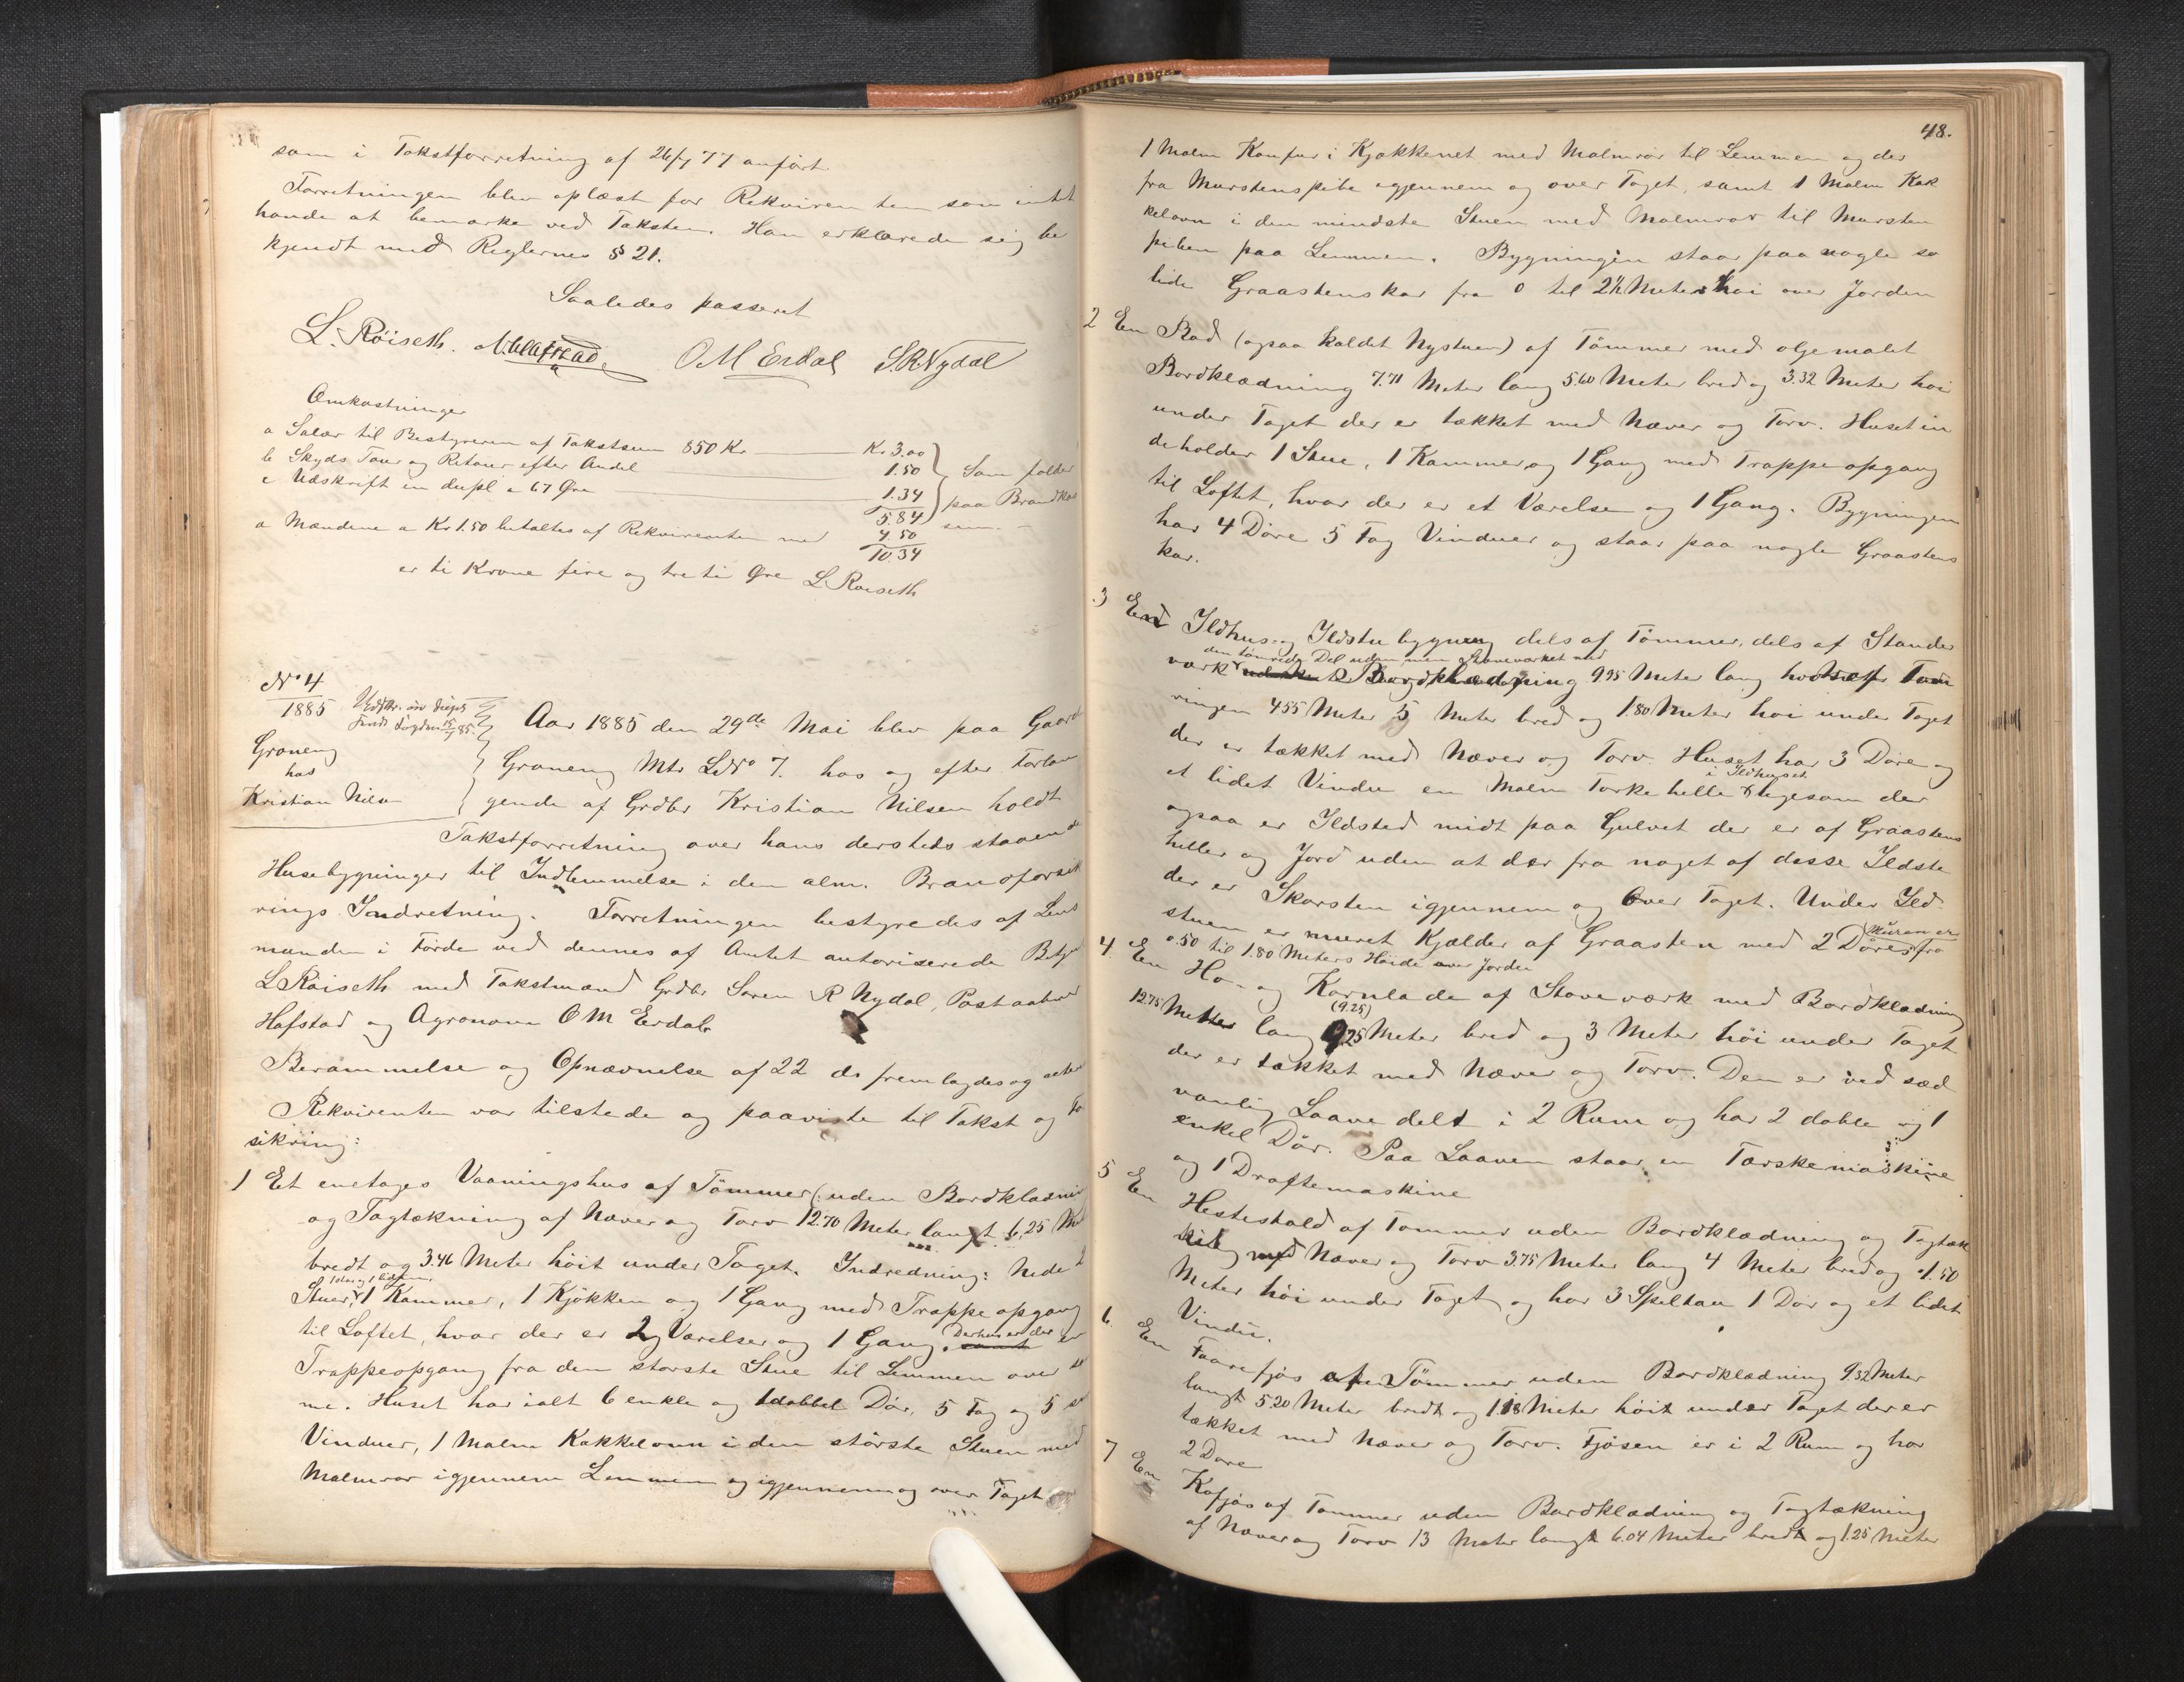 som i Takstforretning af 26/7 77 anført.
Forretningen blev oplæst for Rekvirenten som intet
havde at bemærke ved Taksten. Han erklærede sig be
kjendt med Reglernes § 21.
Saaledes passeret
L. Röiseth. O M Erdal S.R. Nydal
Omkostninger
a Salær til Bestyreren af Takstsum 850 Kr. Kr. 3.00
b Skyds Tour og Retour efter Andel 1.50 Som falder
c Udskrift in dupl a 67 Øre 1.34 paa Brandkas
5.84 sen.
a Mændene a Kr 1.50 betaltes af Rekvirenten med 4.50
10.34
er ti Krone fire og treti Øre L Röiseth
No 4
1885
Groneng
hos
Kristian Nilsen
Aar 1885 den 29de Mai blev paa Gaarden
Groneng Mtr LNo 7. hos og efter Forlan
gende af Grdbr Kristian Nilsen holdt
Takstforretning over hans dersteds staaende
Husebygninger til Indlemmelse i den alm. Brandforsik
rings Indretning. Forretningen bestyredes af Lens
manden i Förde ved dennes af Amtet autoriserede Betjent
L Röiseth med Takstmænd Grdbr Søren R Nydal, Postaabner
Hafstad og Agronom O M Erdal.
Berammelse og Opnævnelse af 22 ds fremlagdes og
Rekvirenten var tilstede og paaviste til Takst og For
sikring:
1 Et enetages Vaaningshus af Tömmer (: uden Bordklædning
og Tagtækning af Næver og Torv 12.70 Meter langt 6,25 Meter
bredt og 3.46 Meter höit under Taget. Indredning: Nede 2
Stuer, 1 Kammer, 1 Kjökken og 1 Gang med Trappeopgang
til Loftet, hvor der er 2 Værelser og 1 Gang. Derhos er der en
Trappeopgang fra den störste Stue til Lemmen over
me. Huset har ialt 6 enkle og 1 dobbel Dör, 5 Fag og 5
Vinduer, 1 Malm Kakkelovn i den störste Stuen med
Malmrør igjennem Lemmen og igjennem og over Taget
48.
1 Malm Komfur i Kjøkkenet med Malmrör til Lemmen og der
fra Murstenspibe igjennem og over Taget, samt 1 Malm Kak
kelovn i den mindste Stuen med Malmrør til Mursten
piben paa Lemmen. Bygningen staar paa nogle so
lide Graastenskar fra 0 til 2½ Meters höi over Jorden
2 En Bod (ogsaa kaldet Nystuen) af Tömmer med oljemalet
Bordklædning 7.71 Meter lang 5.60 Meter bred og 3.32 Meter höi
under Taget der er tækket med Næver og Torv. Huset in
deholder 1 Stue, 1 Kammer og 1 Gang med Trappeopgang
til Loftet, hvor der er et Værelse og 1 Gang. Bygningen
har 4 Döre 5 Fag Vinduer og staar paa nogle Graastens
kar.
3 En Ildhus og Ildstubygning dels af Tömmer, dels af Stander
den tömrede Del uden, men Staveværket med
værk Bordklædning 9.95 Meter lang hvoraf Töm
ringen 4.55 Meter 5 Meter bred og 1.80 Meter höi under Taget
der er tækket med Næver og Torv. Huset har 3 Döre og
i Ildhuset
et lidet Vindu en Malm Törkehelle ligesom der
ogsaa er Ildsted midt paa Gulvet der er af Graastens
heller og Jord uden at der fra noget af disse Ildste
der er Skorsten igjennem og over Taget. Under Ild
stuen er muret Kjælder af Graasten med 2 Döre. Muren er fra
0.50 til 1.80 Meters Höide over Jorden
4. En Hö- og Kornlade af Staveværk med Bordklædning
(9.25)
12.75 Meter lang 9.25 Meter bred og 3 Meter höi under Taget
der er tækket med Næver og Torv. Den er ved sæd
vanlig Laave delt i 2 Rum og har 2 doble og 1
enkel Dör. Paa Laaven staar en Tærskemaskine
og 1 Dröftemaskine
5 En Hestestald af Tömmer uden Bordklædning og Tagtæk
ket med Næver og Torv 3.75 Meter lang 4 Meter bred og 1.50
Meter höi under Taget og har 3 Spiltau 1 Dör og et lidet
Vindu.
6. En Faarefjös af Tömmer uden Bordklædning 9.32 Meter
langt 5.20 Meter bredt og 1.18 Meter höit under Taget der er
tækket med Næver og Torv. Fjösen er i 2 Rum og har
2 Döre
7 En Kofjös af Tömmer uden Bordklædning og Tagtækning
af Næver og Torv 13 Meter langt 6.04 Meter bredt og 1.25 Meter